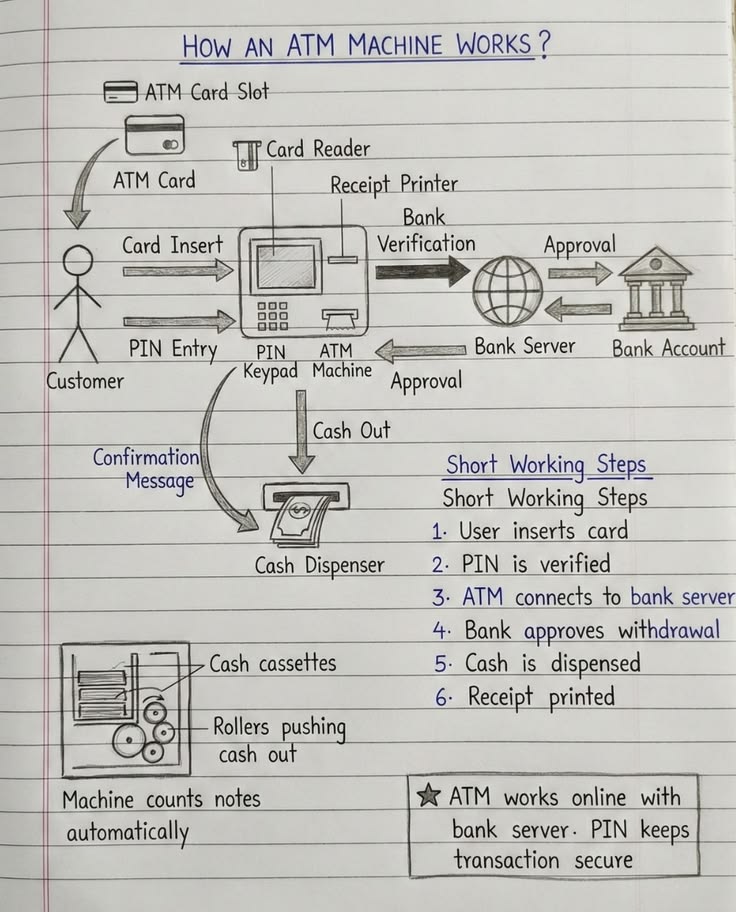 HOW AN ATM MACHINE WORKS?
ATM Card Slot
ATM Card
Card Reader
Receipt Printer
Card Insert
Bank
Verification
Approval
PIN Entry
PIN
Keypad
ATM
Machine
Bank Server
Bank Account
Customer
Approval
Cash Out
Confirmation
Message
$
Cash Dispenser
Short Working Steps
Short Working Steps
1. User inserts card
2. PIN is verified
3. ATM connects to bank server
4. Bank approves withdrawal
5. Cash is dispensed
6. Receipt printed
Cash cassettes
Rollers pushing
cash out
Machine counts notes
automatically
★ ATM works online with
bank server. PIN keeps
transaction secure